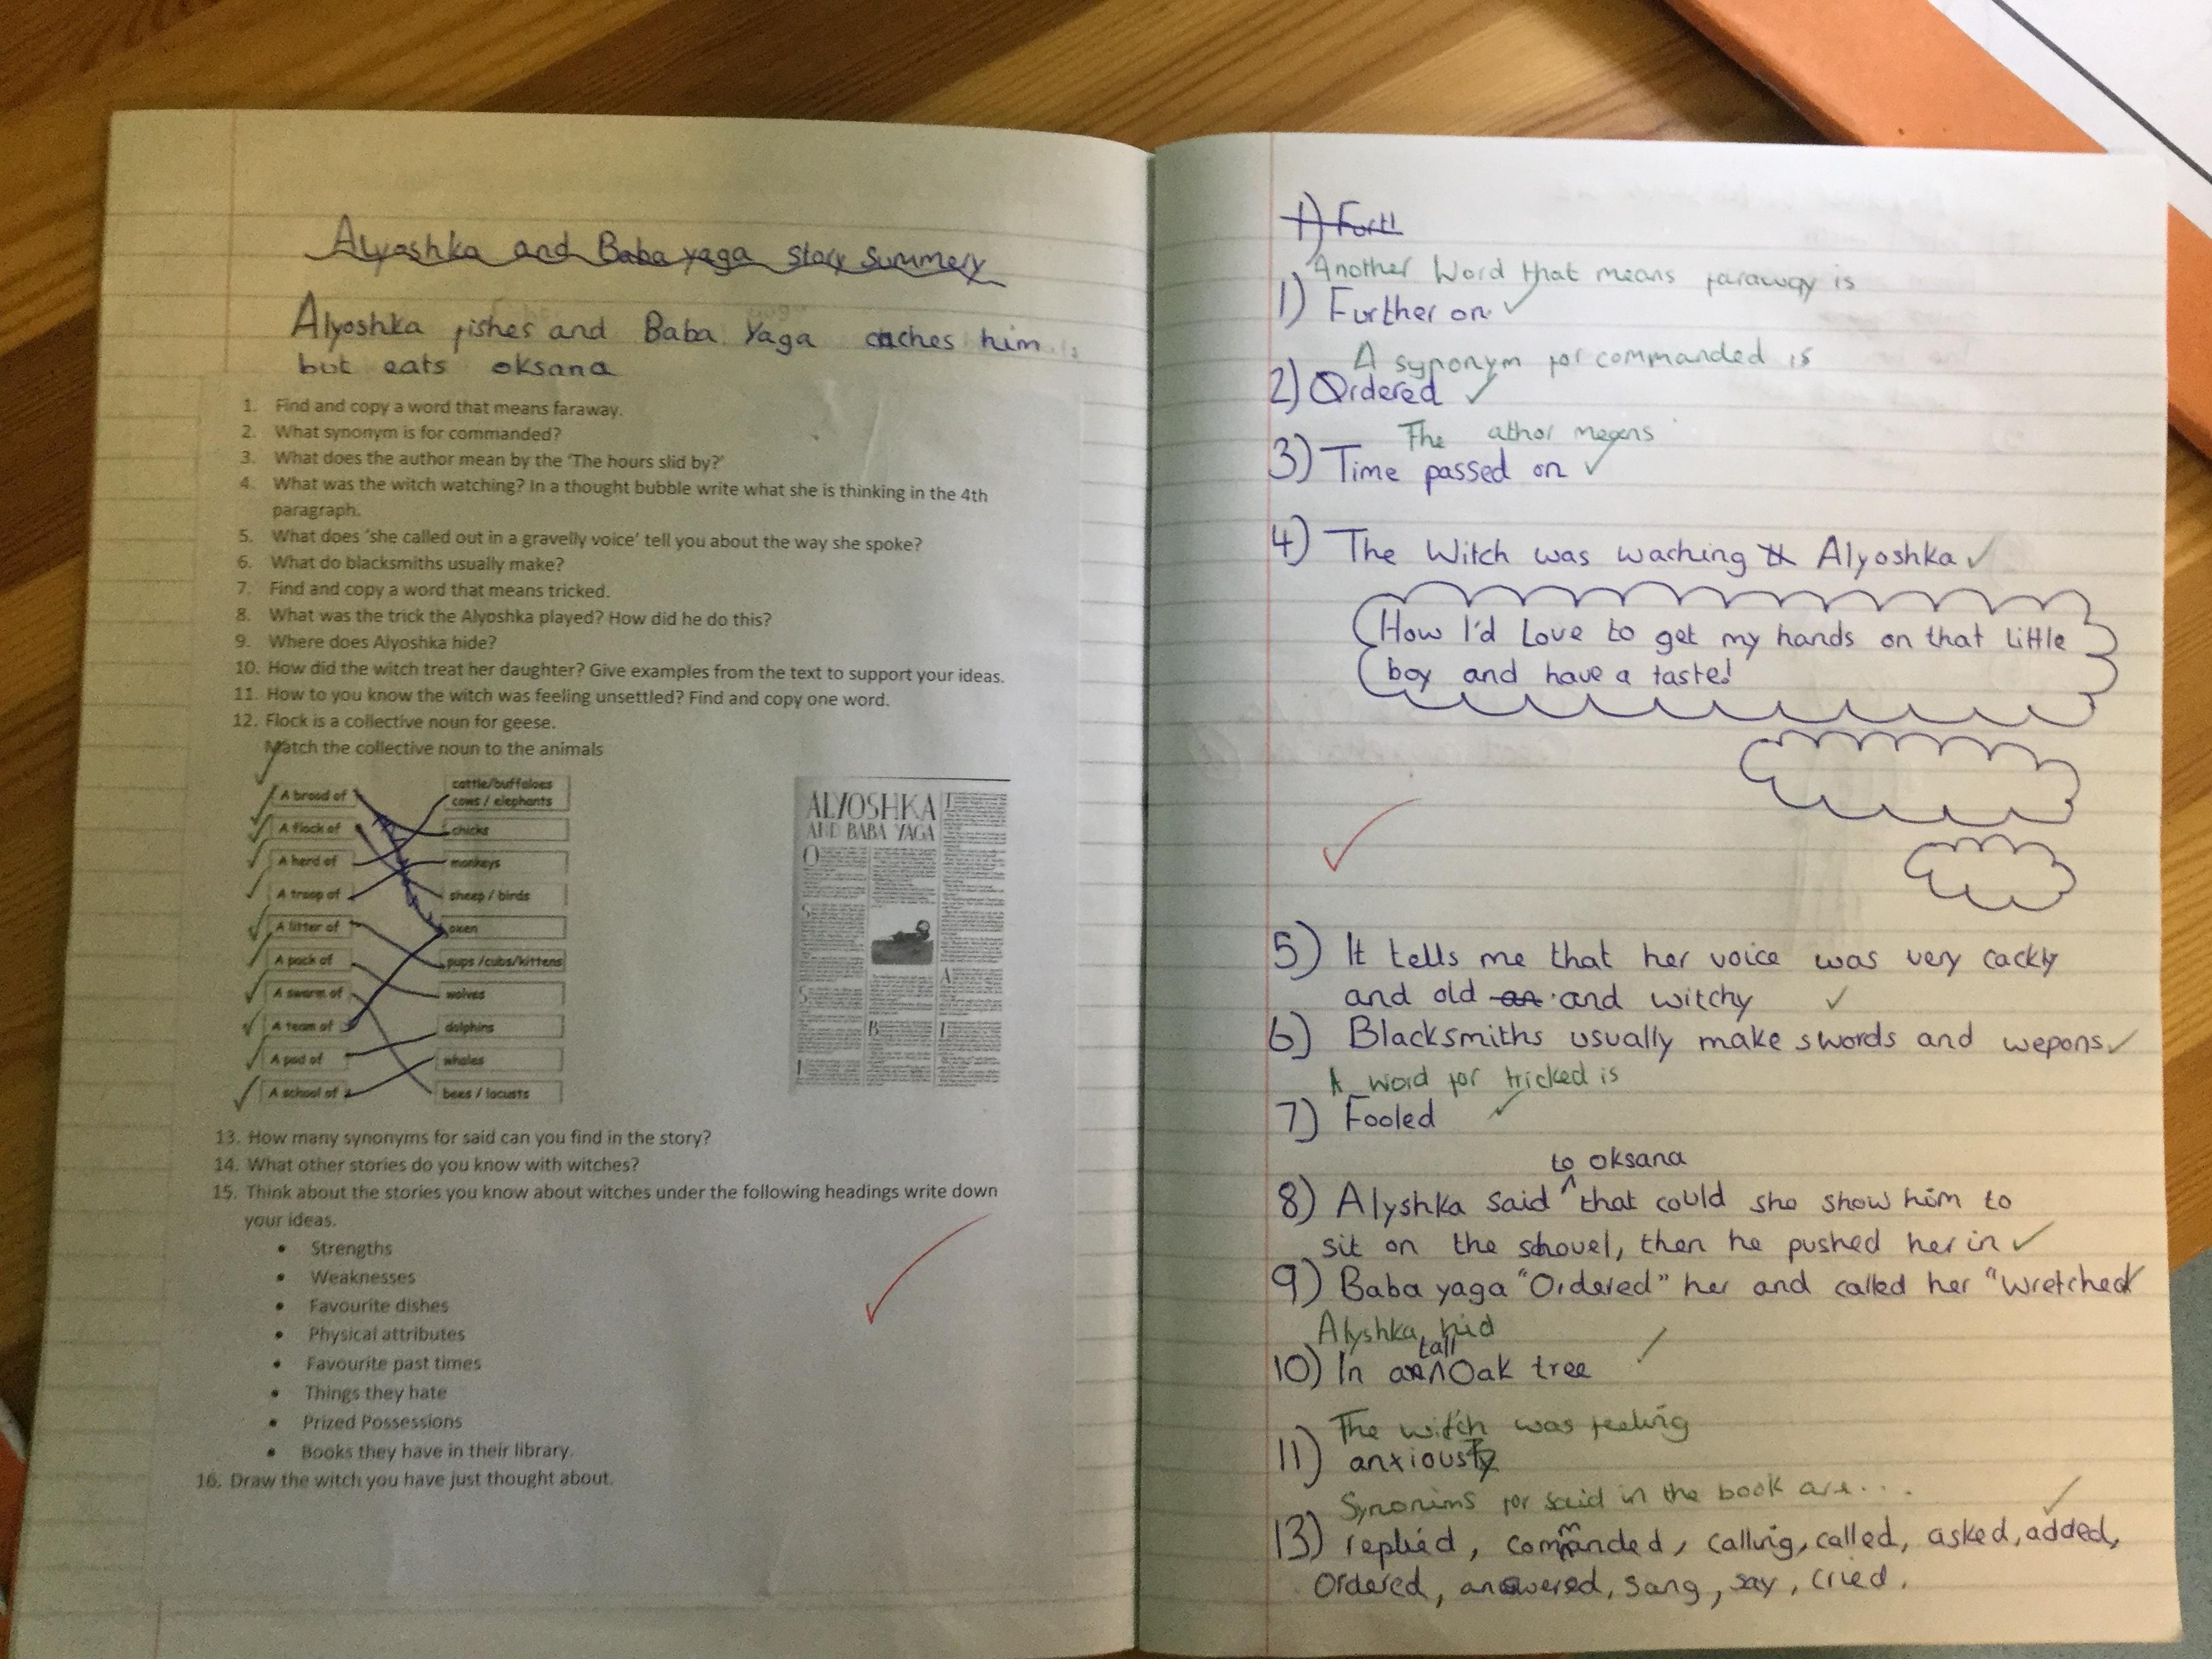 Alyoshka and Baba yaga story Summery
Alyoshka fishes and Baba Yaga caches him
but eats oksana
1. Find and copy a word that means faraway.
2. What synonym is for commanded?
3. What does the author mean by the 'The hours slid by?'
4. What was the witch watching? In a thought bubble write what she is thinking in the 4th
paragraph.
5. What does 'she called out in a gravelly voice' tell you about the way she spoke?
6. What do blacksmiths usually make?
7. Find and copy a word that means tricked.
8. What was the trick the Alyoshka played? How did he do this?
9. Where does Alyoshka hide?
10. How did the witch treat her daughter? Give examples from the text to support your ideas.
11. How to you know the witch was feeling unsettled? Find and copy one word.
12. Flock is a collective noun for geese.
Match the collective noun to the animals
A brood of
A flock of
A herd of
A troop of
A litter of
A pack of
A swarm of
A team of
A pod of
A school of
cattle/buffaloes
cows / elephants
chicks
monkeys
sheep / birds
oxen
pups /cubs/kittens
wolves
dolphins
whales
bees / locusts
ALYOSHKA
AND BABA YAGA
13. How many synonyms for said can you find in the story?
14. What other stories do you know with witches?
15. Think about the stories you know about witches under the following headings write down
your ideas.
• Strengths
• Weaknesses
• Favourite dishes
• Physical attributes
• Favourite past times
• Things they hate
• Prized Possessions
• Books they have in their library.
16. Draw the witch you have just thought about.
1)
Another Word that means faraway is
1) Further on
A synonym for commanded is
2) Ordered
The athor means
3) Time passed on
4) The Witch was waching Alyoshka
How I'd Love to get my hands on that little
boy and have a taste!
5) It tells me that her voice was very cackly
and old and witchy
6) Blacksmiths usually make swords and wepons
A word for tricked is
7) Fooled
to oksana
8) Alyshka said that could she show him to
sit on the shovel, then he pushed her in
9) Baba yaga "Ordered" her and called her "Wretched
Alyshka hid
tall
10) In a Oak tree
The witch was feeling
11) anxious
Synonims for said in the book are...
13) replied, commanded, calling, called, asked, added,
Ordered, answered, sang, say, cried.